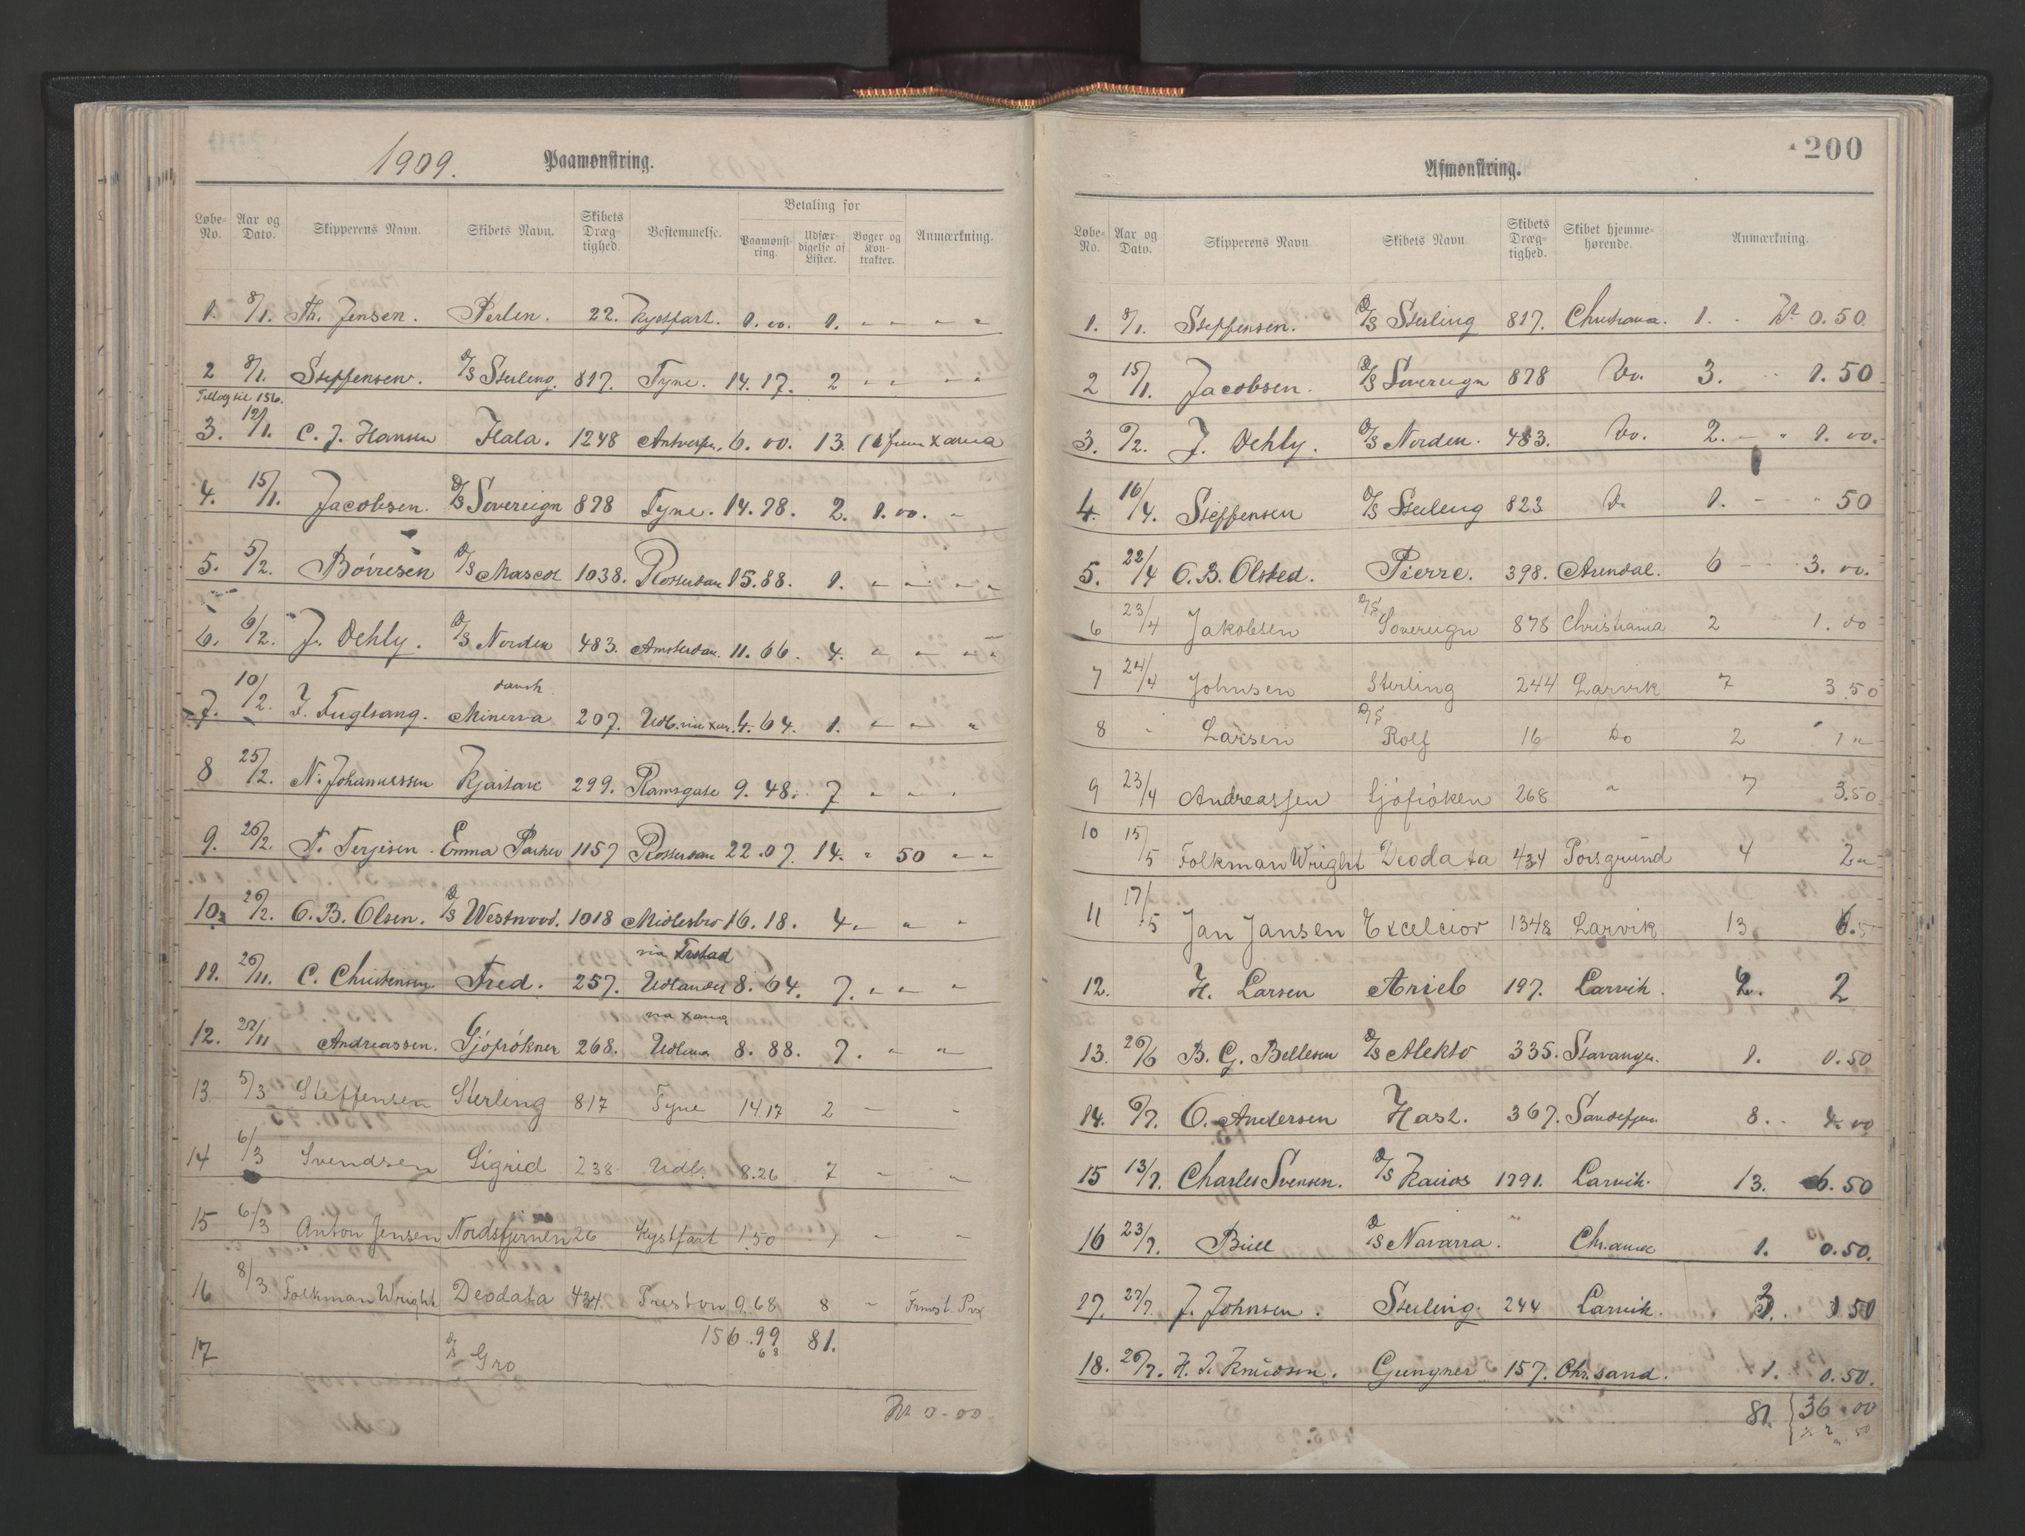 1909.
Paamonstring.
Løbe-No. Aar og Dato. Skipperens Navn. Skibets Navn. Skibets Dræg-tighed. Bestemmelse. Betaling for Paamønst-ring. Udfær-digelse af Lister. Bøger og Kon-trakter. Anmærkning.
1. 8/1. Th. Jensen. Perlen. 22. Kystfart. 1.00. 1. " " " "
2 8/1. Steffensen. D/S Sterling. 817. Tyne. 14.17. 2 " " " "
Tillæg til 156.
3. 12/1. C. J. Hansen Hala. 1248 Antverpn. 6.00. 13
4. 15/1. Jacobsen. D/S Sovereign 878 Tyne. 14.78. 2. 1.00. "
5. 5/2. Børresen D/S Mascot 1038. Rotterdam 15.88. 1. " " "
6. 6/2. J. Oehly. D/S Norden 483. Amsterdam. 11.66. 4. " " " "
dansk.
7. 10/2. J. Fuglsang. Minerva 207. Udl. via Xan. 4.64. 1. " " "
8 25/2. N. Johannessen Kjartan 299. Ramsgate 9.48. 7 " " "
9. 26/2. T. Terjesen. Emma Parker 1157 Rotterdam 22.07. 14. " 50 " "
10. 26/2. O. B. Olsen. D/S Westwood. 1018 Midlesbro 16.18. 4 " " "
via Frstad
11. 26/11. C. Christensen Fred. 257. Udlandet 8.64. 7. " " "
via Xania
12. 27/11 Andreassen. Sjøfrøkner 268. Udland 8.88. 7. " "
13 5/3 Steffensen Sterling 817 Tyne 14.17 2 — "
14 6/3 Svendsen Sigrid 238 Udl. 8.26 7 — "
15 6/3 Anton Jensen Nordstjernen 26 Kystfart 1.50 1 — "
16 8/3 Folkman Wright Deodata 434. Preston 9.68 8 —
17 D/S Gro 156.99 81.
68
Kr 1.00.
200
Afmonstring.
Løbe-No. Aar og Dato. Skipperens Navn Skibets Navn Skibets Dræg-tighed. Skibet hjemme-hørende. Anmærkning.
1. 8/1. Steffensen. D/S Sterling 817. Christiania. 1. Kr 0.50.
2 15/1. Jacobsen. D/S Sovereign 878 Do. 3. " 1.50
3. 9/2. J. Oehly. D/S Norden. 483. Do. 2. — " 1.00.
4. 16/4. Steffensen D/S Sterling 823 Do 1. — " 50
5. 22/4 O. B. Olsted. Pierre. 398. Arendal. 6 — 3.00.
6 23/4 Jakobsen D/S Sovereign 878 Christiania 2 " 1.00
7 24/4 Johnsen Sterling 244 Larvik 7 3.50
8 " Larsen D/S Rolf 16 Do 2 1 "
9 23/4 Andreassen Sjøfrøken 268 " 7 3.50
10 15/5 Folkman Wright Deodata 434 Porsgrund 4 2 "
11 17/5 Jan Jansen Excelcior 1348 Larvik 13 6.5
12. H. Larsen Arieb 197. Larvik. 2. 2
13. 26/6 B. G. Bellesen D/S Alekto 335. Stavanger. 1. 0.50
14. 9/7. O. Andersen Hast. 367. Sandefjord. 8. 4.00
15 13/7. Charles Svensen. D/S Kairos 1791. Larvik. 13. 6.50
16 23/7. Bull D/S Navarra. " Chr.ania 1. 0.50.
17. 27/7. J. Johnsen. Sterling. 244 Larvik. 3. 1.50
18. 26/7. H. J. Knudsen. Gungner 157. Chr.sand. 1. 0.50.
81. 36.00